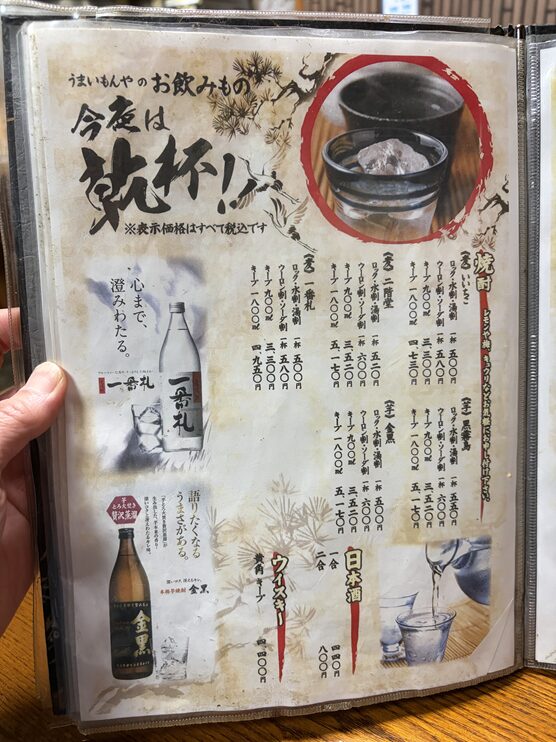 うまいもんや の お飲みもの
今夜は
乾杯!!
※表示価格はすべて税込です
焼酎
(麦)いいちこ
ロック・水割・湯割 一杯 五〇〇円
ウーロン割・ソーダ割 一杯 五八〇円
キープ 九〇〇㎖ 三、三〇〇円
キープ 一八〇〇㎖ 四、七三〇円
(麦)二階堂
ロック・水割・湯割 一杯 五二〇円
ウーロン割・ソーダ割 一杯 六〇〇円
キープ 九〇〇㎖ 三、五二〇円
キープ 一八〇〇㎖ 五、一七〇円
(麦)一番札
ロック・水割・湯割 一杯 五〇〇円
ウーロン割・ソーダ割 一杯 五八〇円
キープ 九〇〇㎖ 三、三〇〇円
キープ 一八〇〇㎖ 四、九五〇円
(芋)黒霧島
ロック・水割・湯割 一杯 五五〇円
ウーロン割・ソーダ割 一杯 六〇〇円
キープ 九〇〇㎖ 三、五二〇円
キープ 一八〇〇㎖ 五、一七〇円
(芋)金黒
ロック・水割・湯割 一杯 五二〇円
ウーロン割・ソーダ割 一杯 六〇〇円
キープ 九〇〇㎖ 三、五二〇円
キープ 一八〇〇㎖ 五、一七〇円
日本酒
一合 四四〇円
二合 八〇〇円
ウィスキー
キープ 四、四〇〇円
心まで、
澄みわたる。
一番札
一番札
語りたくなる
うまさがある。
芋
とろ火炊き
贅沢蒸溜
本格芋焼酎 金黒
金黒